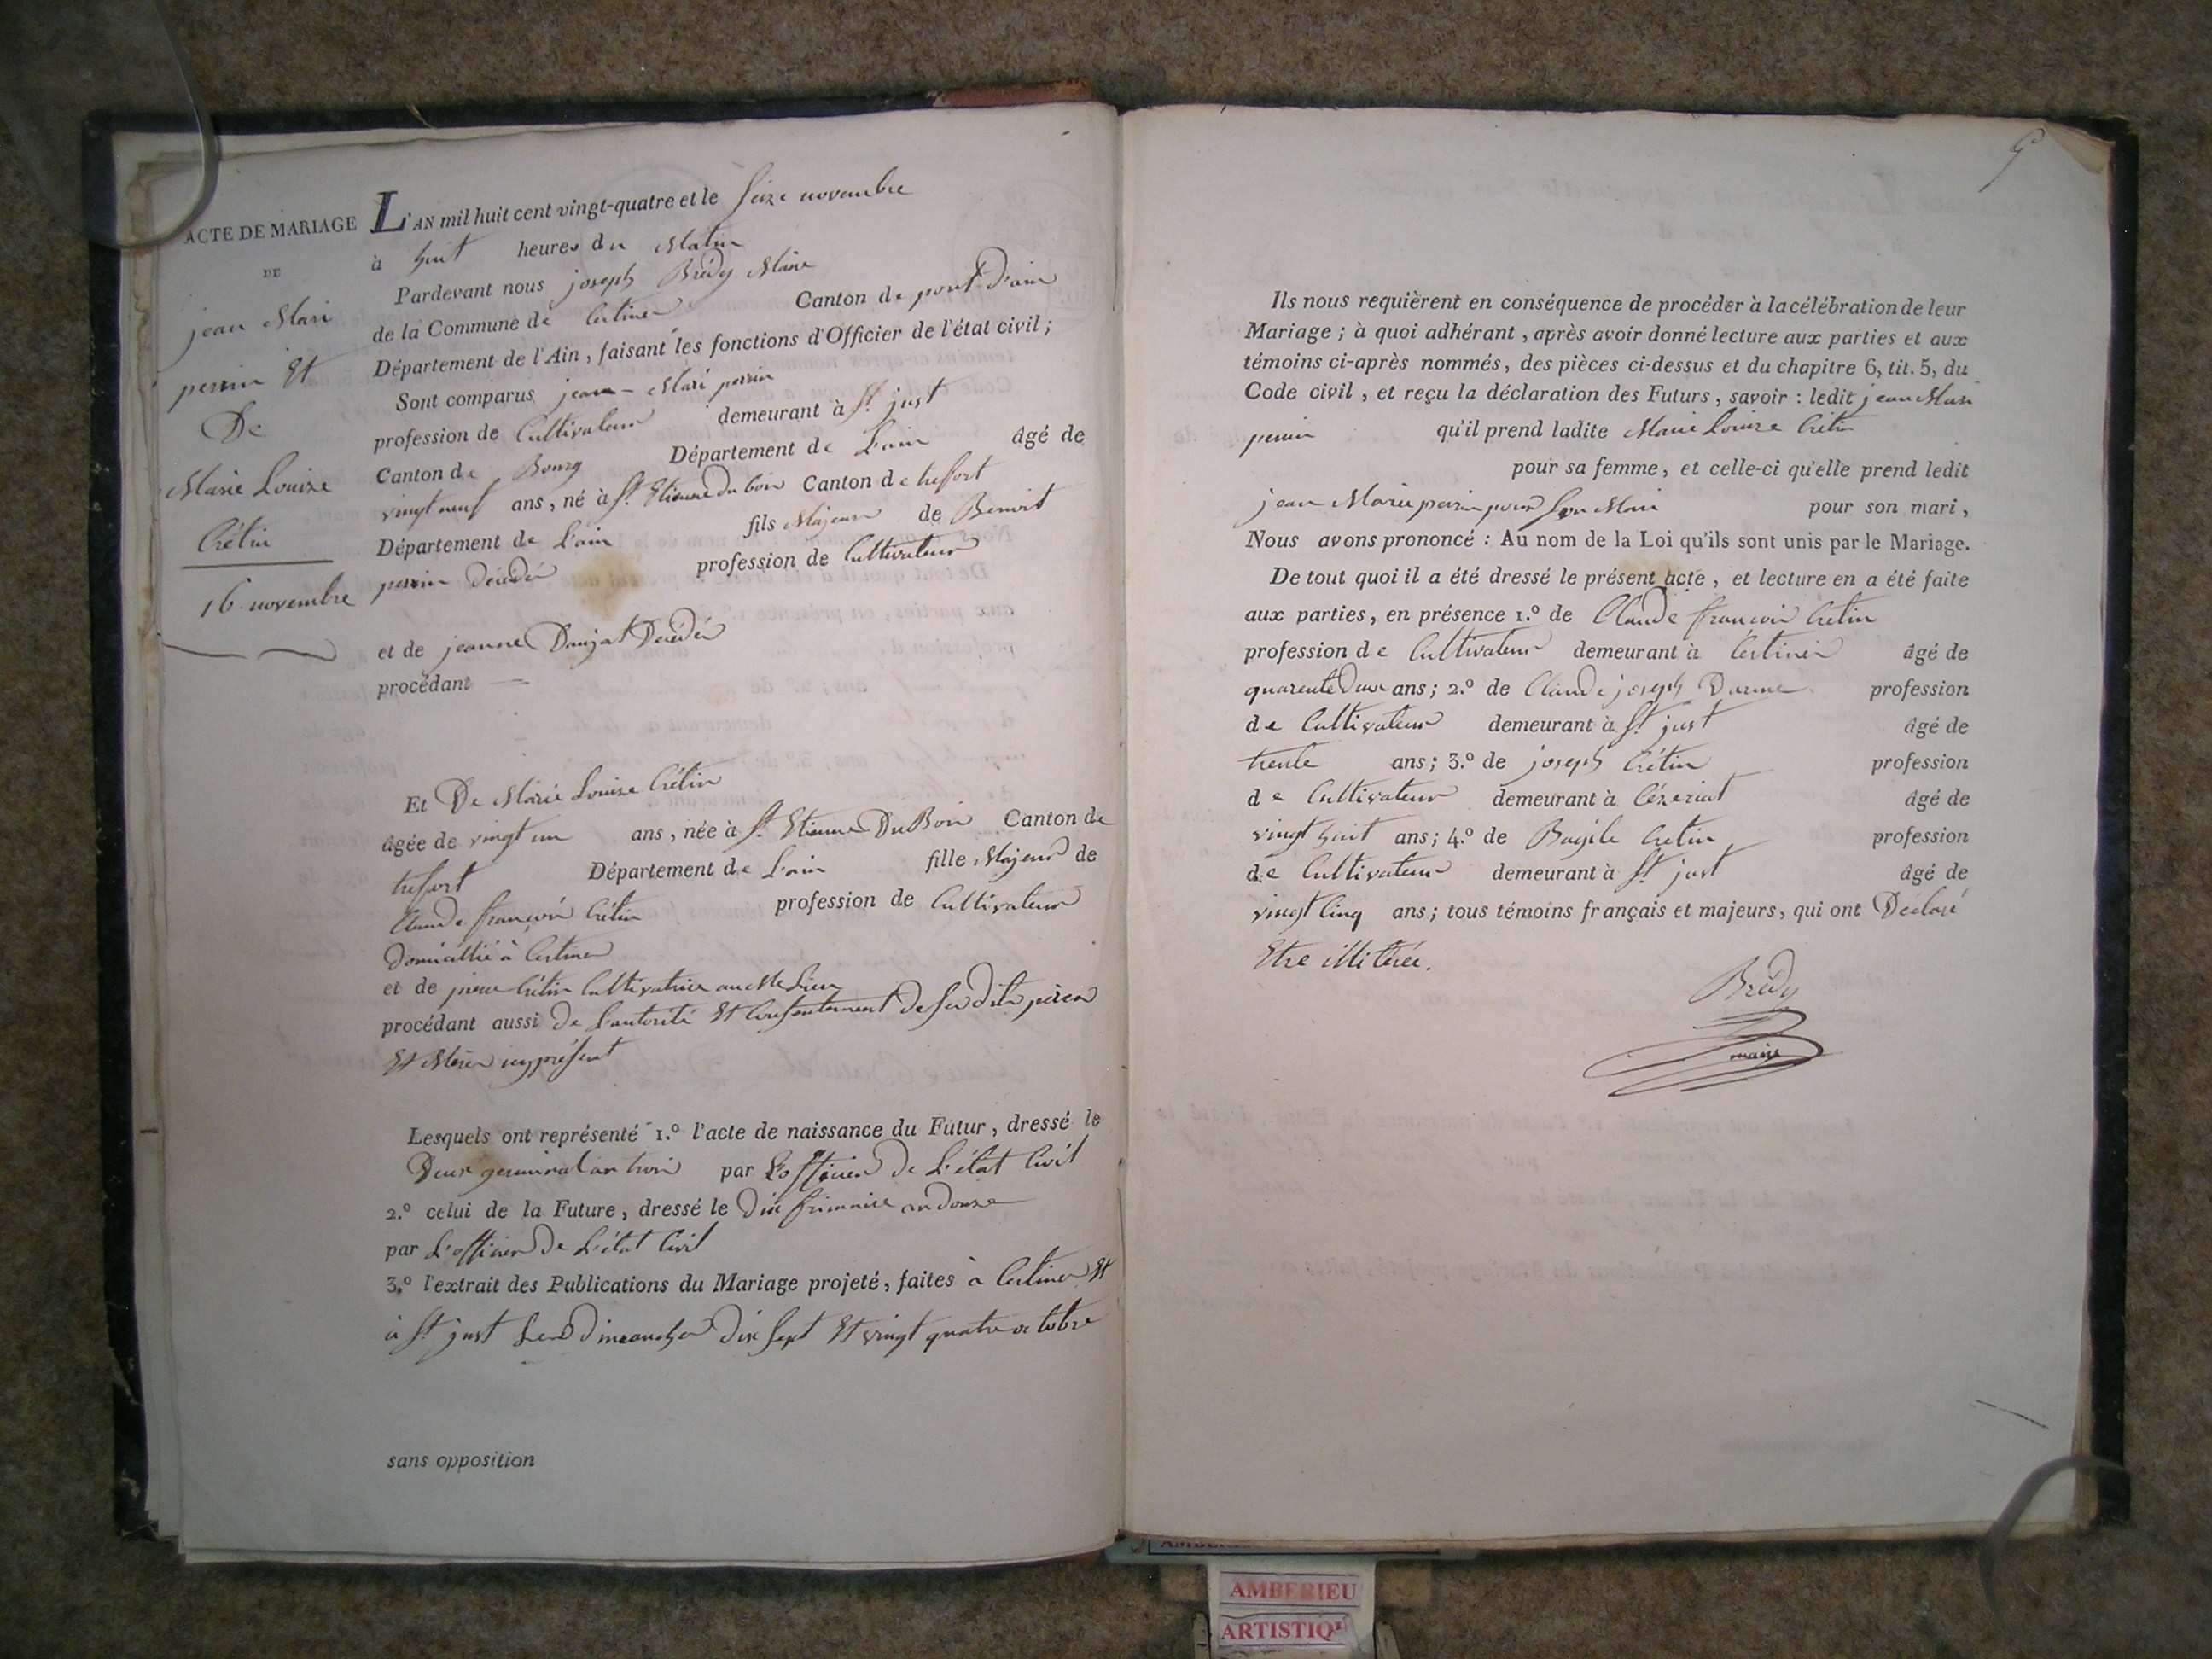 ACTE DE MARIAGE
DE
jean Mari
perrin Et
De
Marie Louise
Crétin
16 novembre
L'AN mil huit cent vingt-quatre et le seize novembre
à huit heures du Matin
Pardevant nous joseph Brédy Maire
de la Commune de Certines Canton de pont D'ain
Département de l'Ain, faisant les fonctions d'Officier de l'état civil;
Sont comparus jean-Mari perrin
profession de Cultivateur demeurant à St. just
Canton de Bourg Département de L'ain âgé de
vingt neuf ans, né à St. Etienne du bois Canton de trefort
Département de L'ain fils Majeur de Benoit
perrin décédé profession de Cultivateur
et de jeanne Decédée
procédant
Et De Marie Louise Crétin
âgée de vingt un ans, née à St. Etienne Du Bois Canton de
trefort Département de L'ain fille Majeur de
Claude françois Crétin profession de Cultivateur
Domicillié à Certines
et de Crétin Cultivatrice au Me Lieu
procédant aussi de L'autorité Et Consentement de ses dits pères
Et Mère icy présent
Lesquels ont représenté 1.° l'acte de naissance du Futur, dressé le
Deux germinal an trois par L'officier De L'état Civil
2.° celui de la Future, dressé le Dix frimaire an douze
par L'officier De L'état Civil
3.° l'extrait des Publications du Mariage projeté, faites à Certines Et
à St. just Les Dimanches Dix sept Et vingt quatre octobre
sans opposition
5
Ils nous requièrent en conséquence de procéder à la célébration de leur
Mariage; à quoi adhérant, après avoir donné lecture aux parties et aux
témoins ci-après nommés, des pièces ci-dessus et du chapitre 6, tit. 5, du
Code civil, et reçu la déclaration des Futurs, savoir: ledit jean Mari
perrin qu'il prend ladite Marie Louise Crétin
pour sa femme, et celle-ci qu'elle prend ledit
jean Marie perrin pour Son Mari pour son mari,
Nous avons prononcé: Au nom de la Loi qu'ils sont unis par le Mariage.
De tout quoi il a été dressé le présent acte, et lecture en a été faite
aux parties, en présence 1.° de Claude françois Cretin
profession de Cultivateur demeurant à Certines âgé de
quarente Deux ans; 2.° de Claude joseph profession
de Cultivateur demeurant à St. just âgé de
trente ans; 3.° de joseph Crétin profession
de Cultivateur demeurant à Cézeriat âgé de
vingt huit ans; 4.° de Bazile Cretin profession
de Cultivateur demeurant à St. just âgé de
vingt Cinq ans; tous témoins français et majeurs, qui ont Declaré
Etre illitérée.
Brédy
maire
AMBERIEU
ARTISTIQ